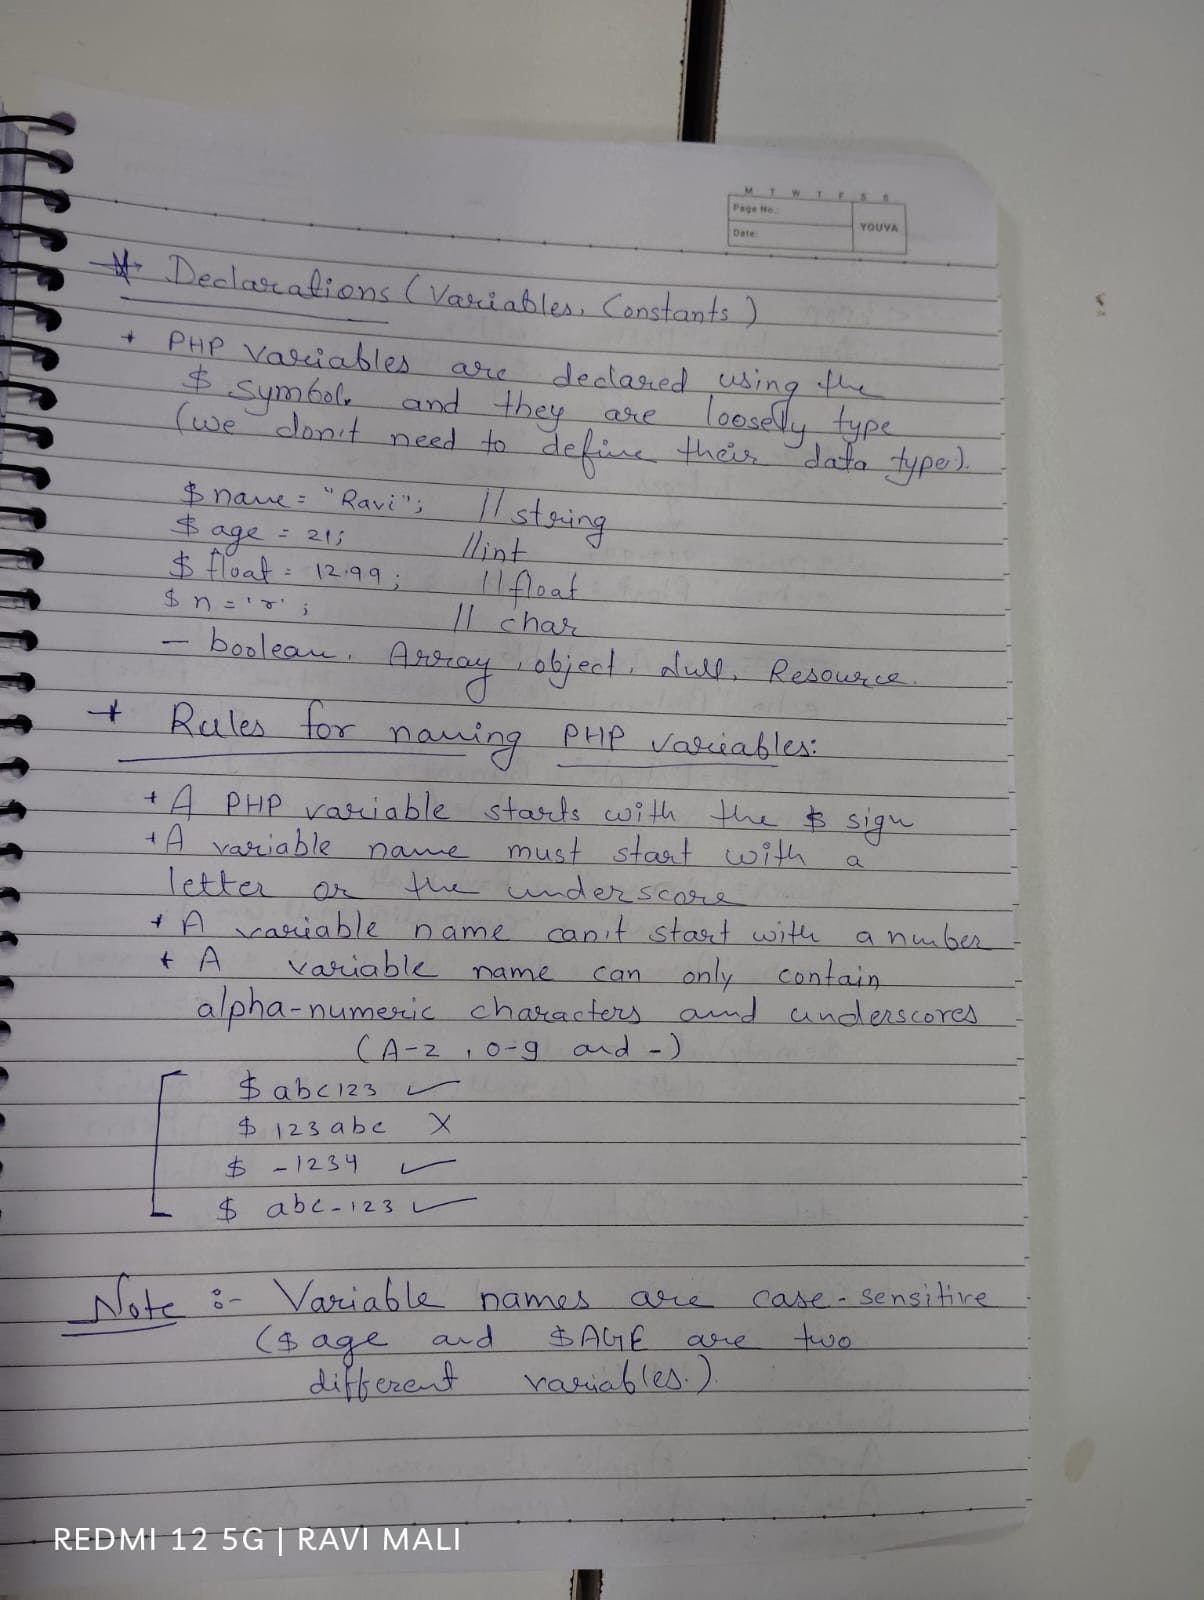 M T W T F S S
Page No.:
Date:
YOUVA
* Declarations (Variables, Constants)
+ PHP variables are declared using the
$ symbol. and they are loosely type
(we don't need to define their data type).
$name = "Ravi"; // string
$age = 21; //int
$float = 12.99; // float
$n = 'r'; // char
- boolean, Array, object, Null, Resource.
+ Rules for naming PHP variables:
+ A PHP variable starts with the $ sign
+ A variable name must start with a
letter or the underscore
+ A variable name can't start with a number
+ A variable name can only contain
alpha-numeric characters and underscores
(A-z, 0-9 and _)
$ abc123 ✓
$ 123abc X
$ _1234 ✓
$ abc_123 ✓
Note :- Variable names are case-sensitive
($age and $AGE are two
different variables.).
REDMI 12 5G | RAVI MALI